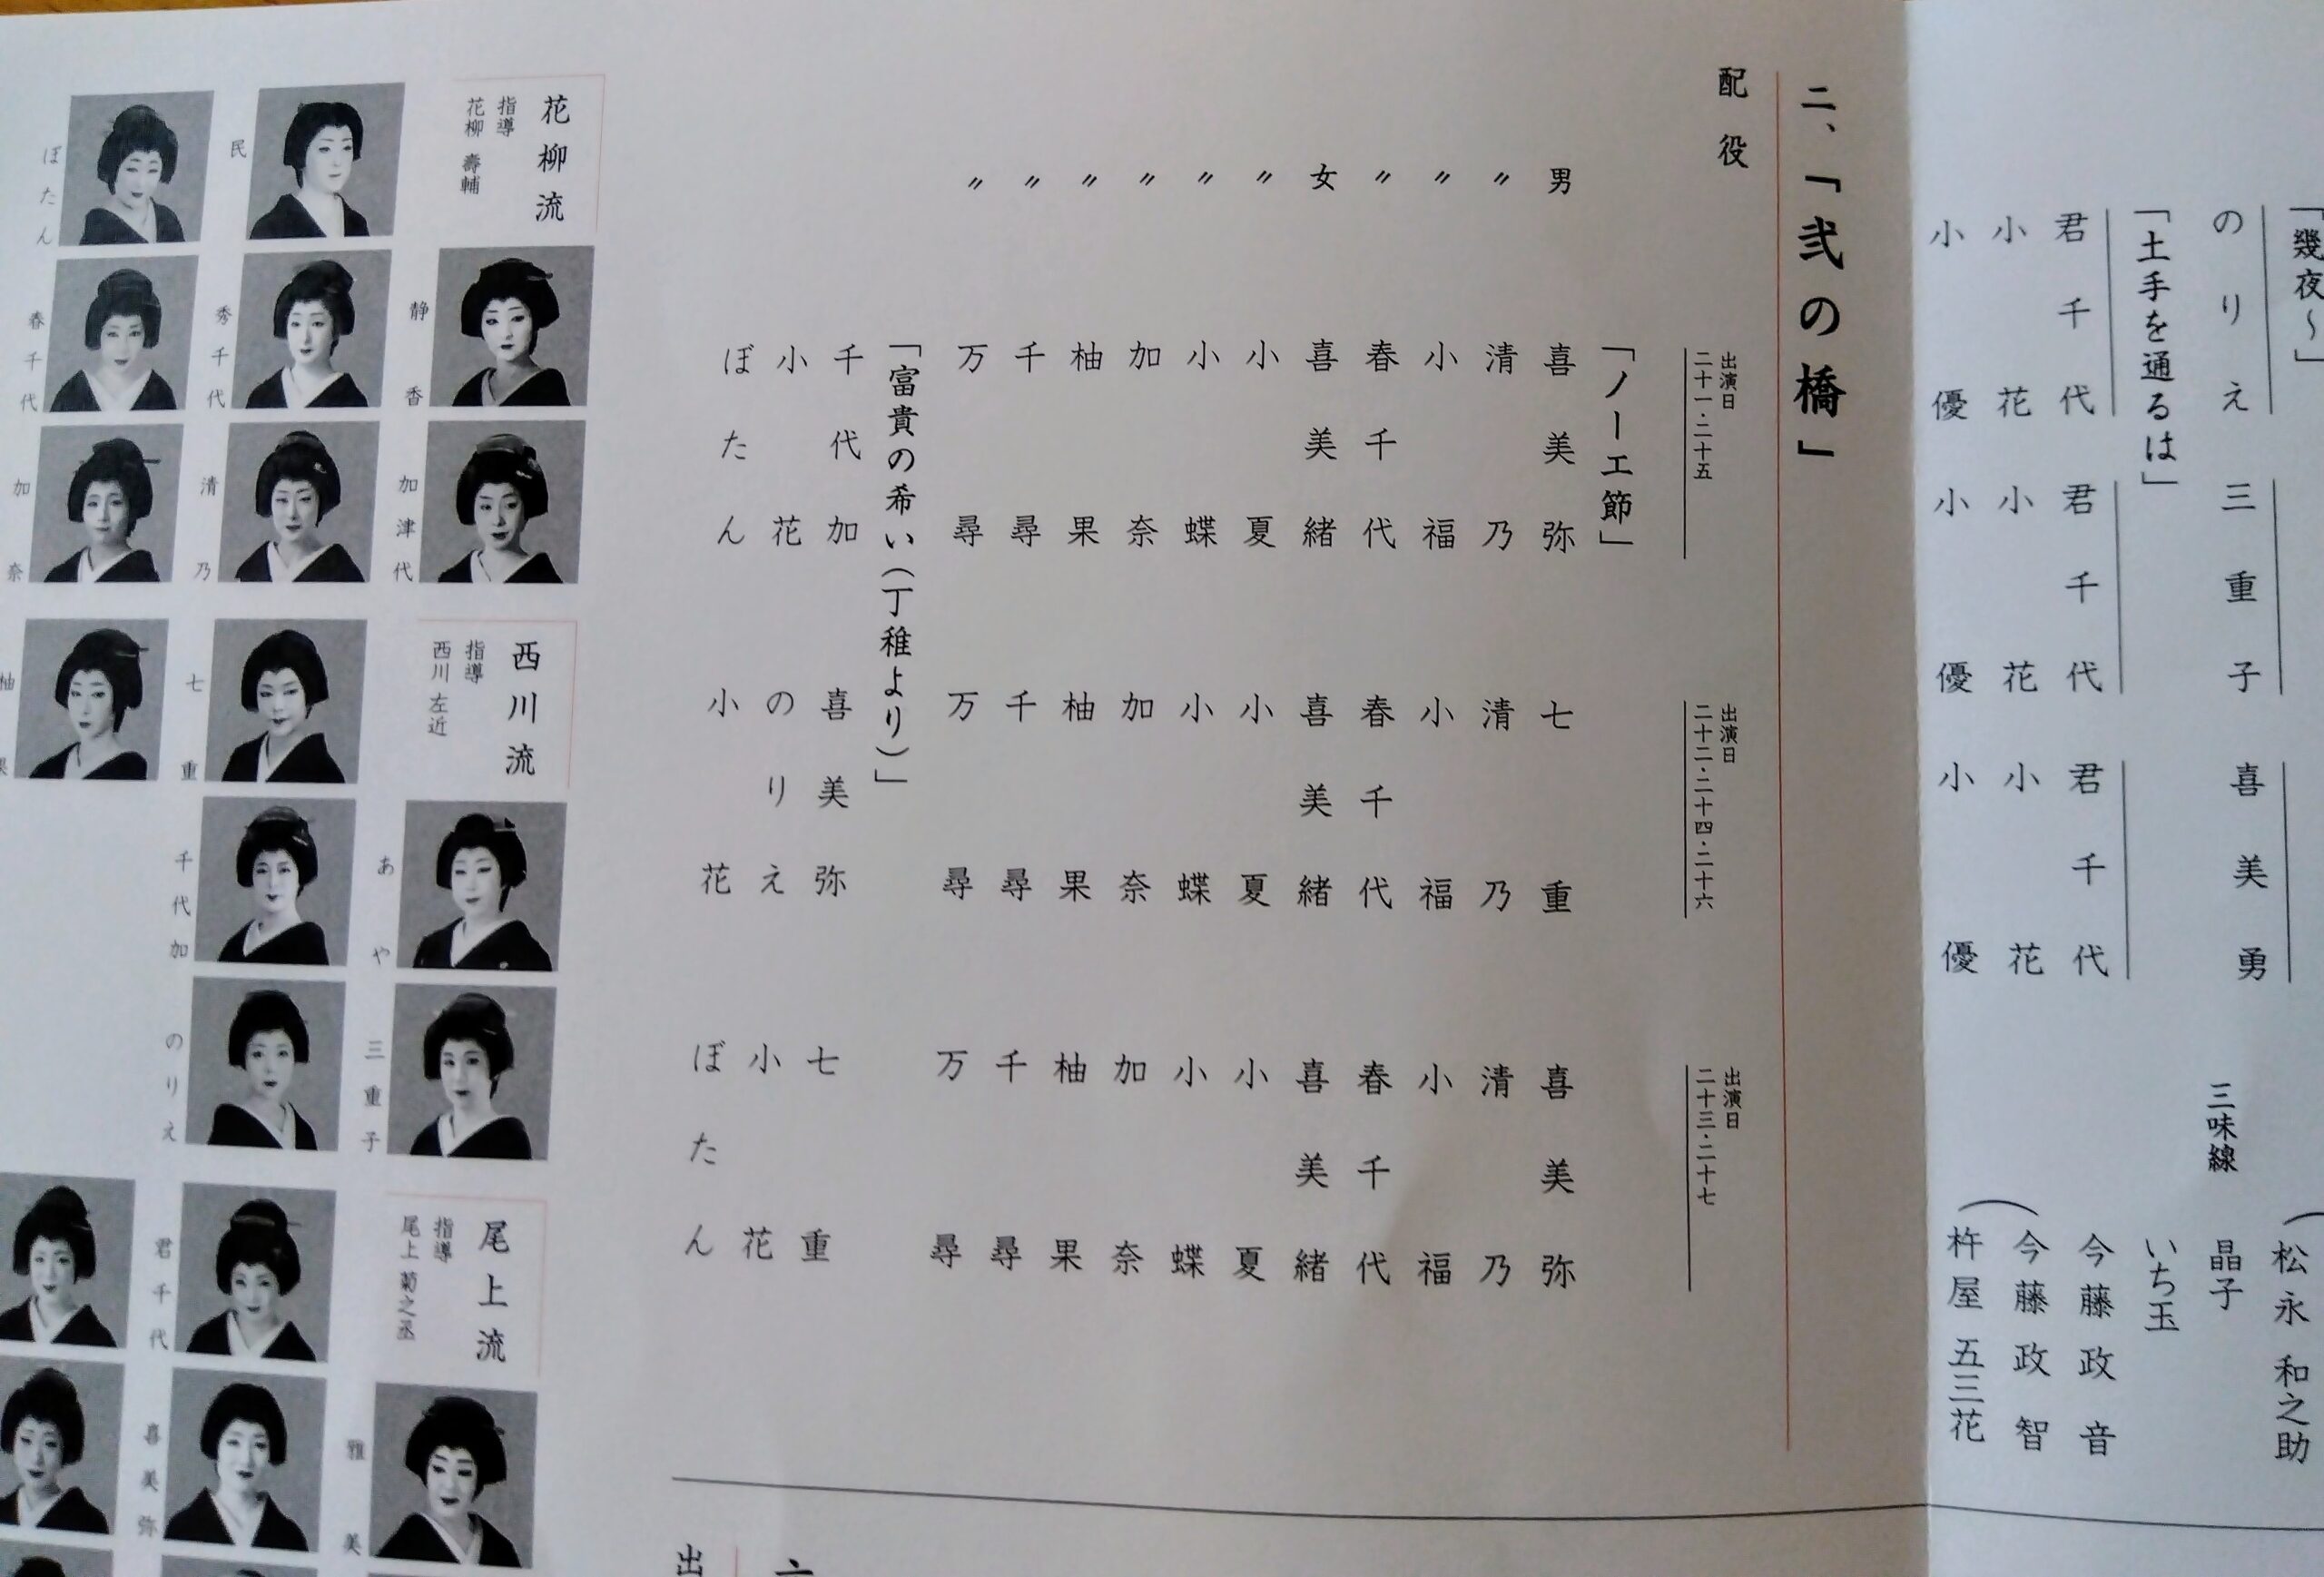 「幾夜〜」
松永 和之助
のりえ 三重子 喜美勇
三味線 晶子
「土手を通るは」
いち玉
君千代 君千代 君千代
今藤 政音
小花 小花 小花
今藤 政智
小優 小優 小優
杵屋 五三花
二、「弐の橋」
配役
出演日
二十一・二十五
出演日
二十二・二十四・二十六
出演日
二十三・二十七
「ノーエ節」
男 喜美弥 七重 喜美弥
〃 清乃 清乃 清乃
〃 小福 小福 小福
〃 春千代 春千代 春千代
女 喜美緒 喜美緒 喜美緒
〃 小夏 小夏 小夏
〃 小蝶 小蝶 小蝶
〃 加奈 加奈 加奈
〃 柚果 柚果 柚果
〃 千尋 千尋 千尋
〃 万尋 万尋 万尋
「富貴の希い(丁稚より)」
千代加 喜美弥 七重
小花 のりえ 小花
ぼたん 小花 ぼたん
花柳流
指導
花柳 壽輔
静香
加津代
民
秀千代
清乃
ぼたん
春千代
加奈
西川流
指導
西川 左近
あや
三重子
七重
千代加
のりえ
柚果
尾上流
指導
尾上 菊之丞
雅美
君千代
喜美弥
出